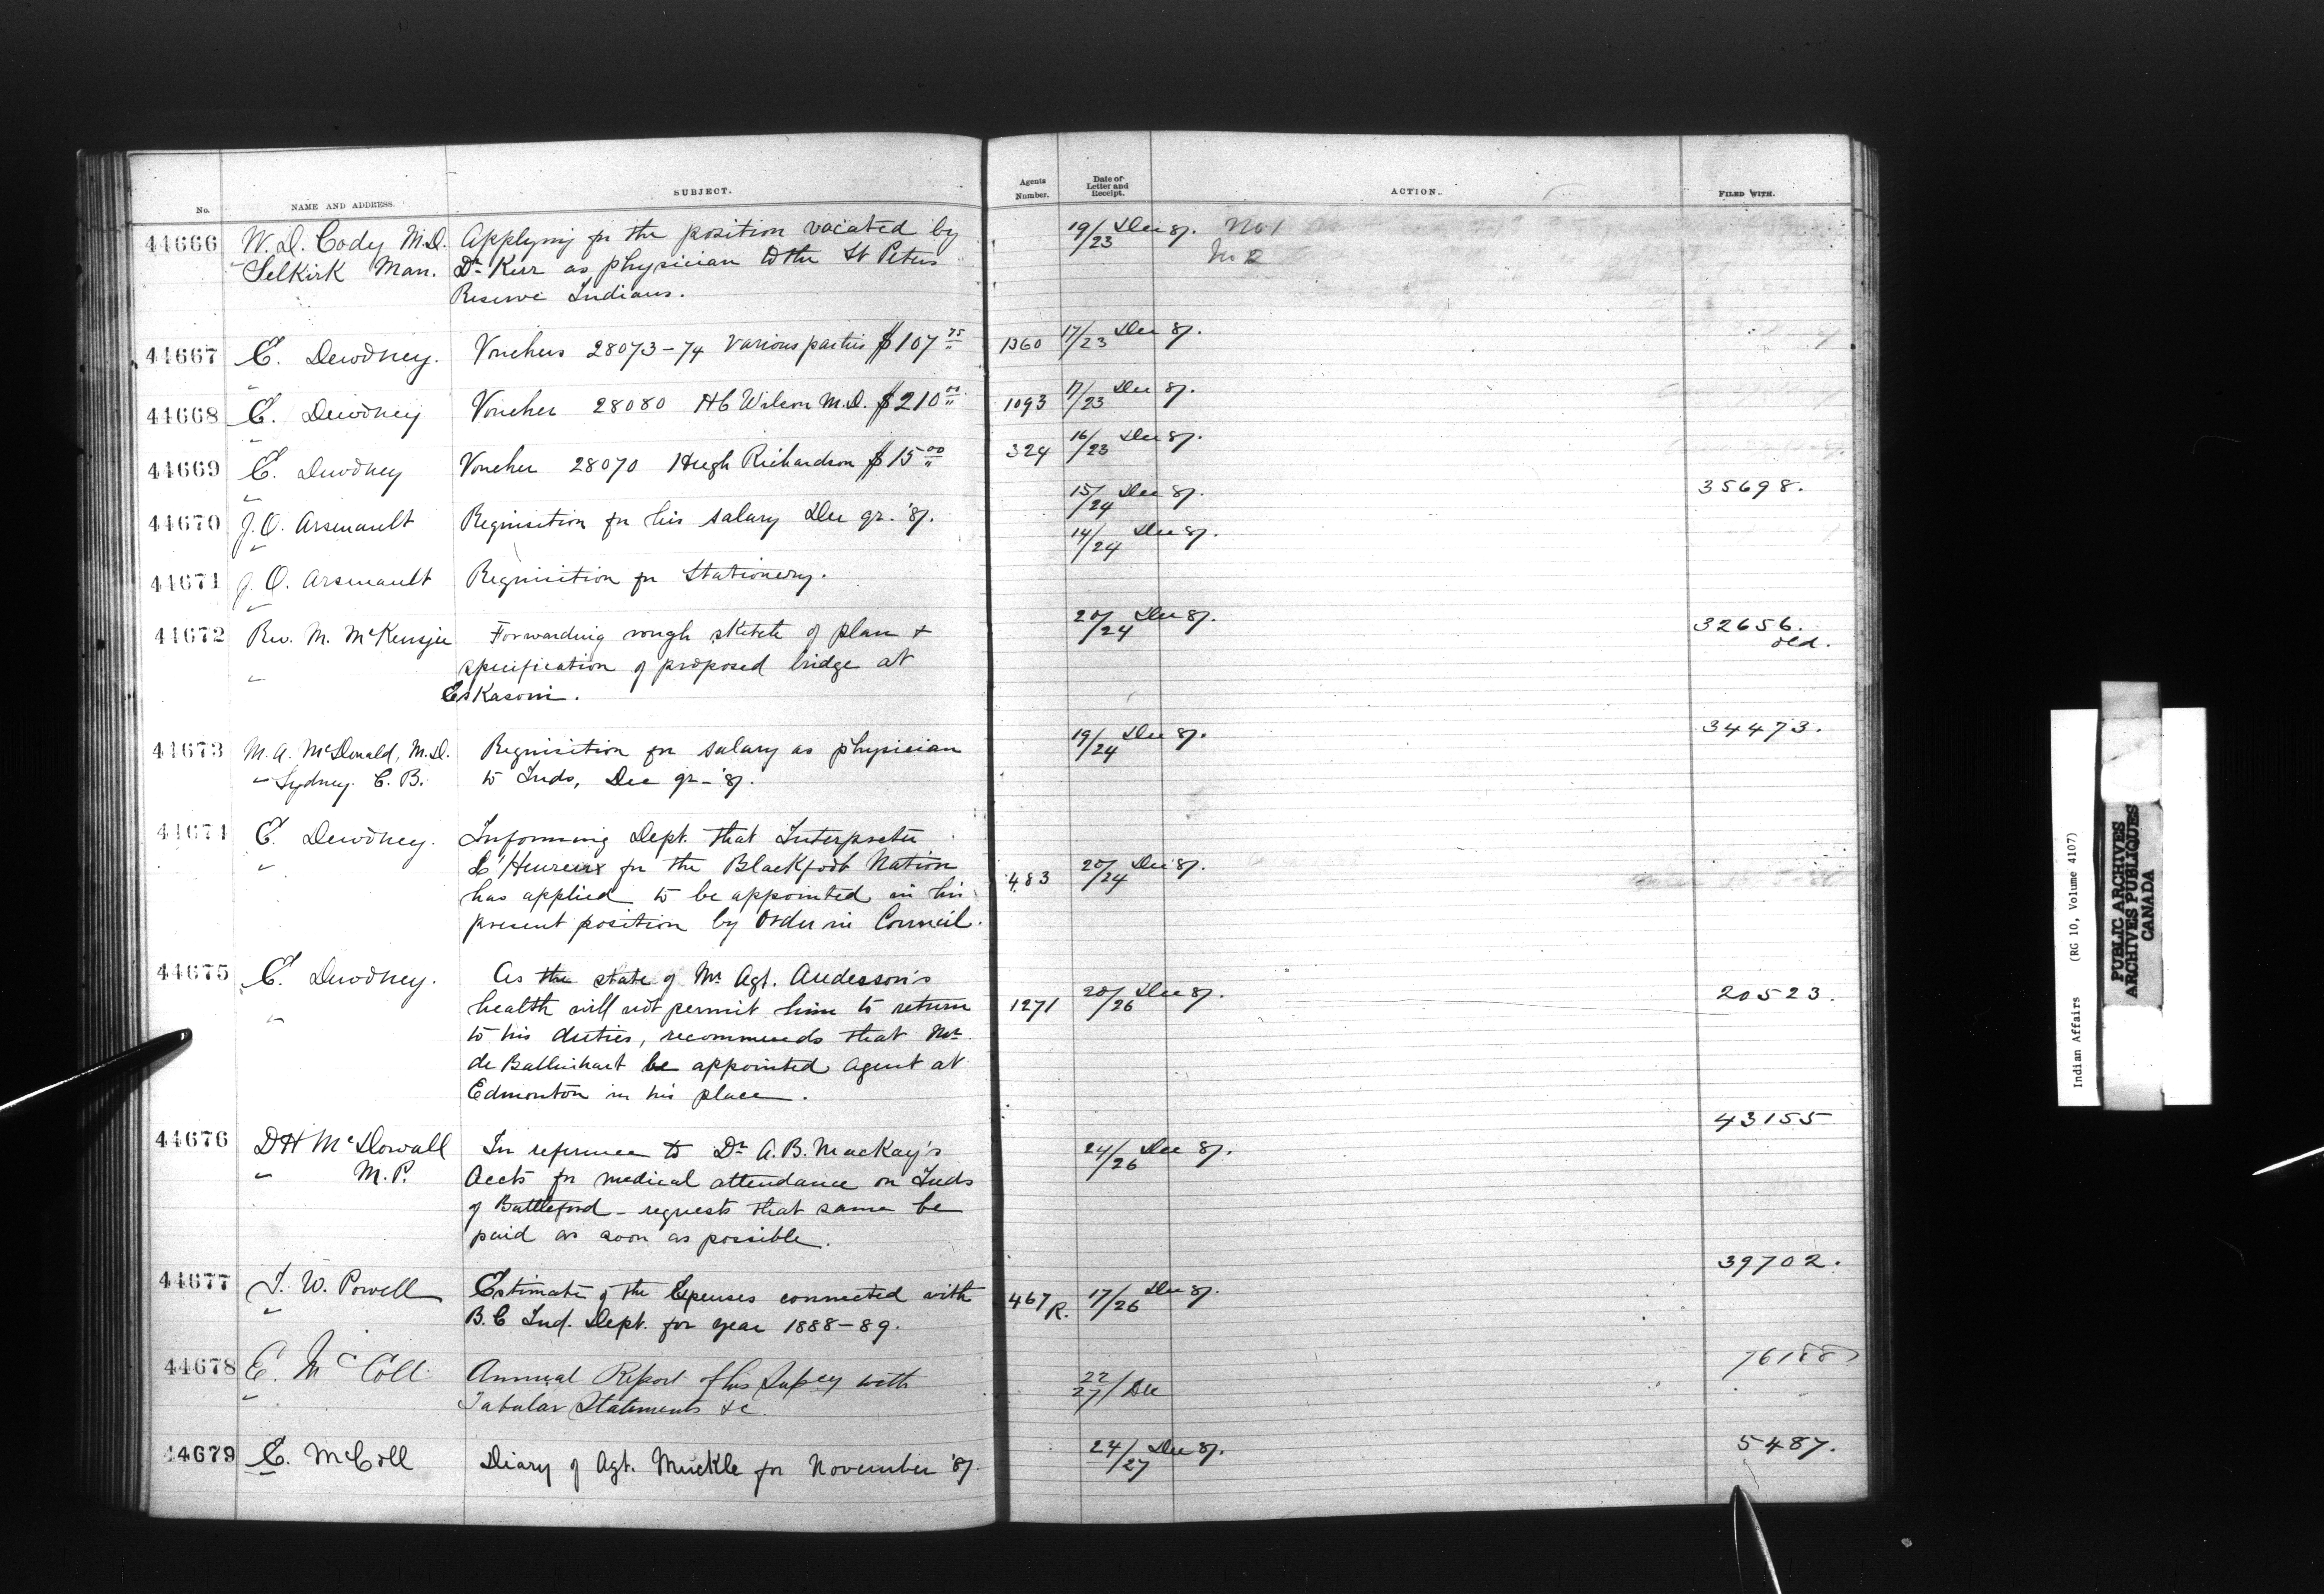 No.
NAME AND ADDRESS.
SUBJECT.
Agents Number.
Date of Letter and Receipt.
ACTION.
FILED WITH.
44666 W. D. Cody M.D. Applying for the position vacated by 19/23 Dec 87. No 1
Selkirk Man. Dr Kerr as physician to the St Peters No 2
Reserve Indians.
44667 E. Dewdney. Vouchers 28073-74 Various parties $107 75 1360 17/23 Dec 87.
44668 E. Dewdney Voucher 28080 H C Wilson M.D. $210 00 1093 17/23 Dec 87.
44669 E. Dewdney Voucher 28070 Hugh Richardson $15 00 324 16/23 Dec 87.
44670 J. O. Arsenault Requisition for his salary Dec qr. '87. 15/24 Dec 87. 35698.
44671 J. O. Arsenault Requisition for Stationery. 14/24 Dec 87.
44672 Rev. M. McKenzie Forwarding rough sketch of plan & 20/24 Dec 87. 32656.
specification of proposed bridge at old.
Eskasoni.
44673 M. A. McDonald, M.D. Requisition for salary as physician 19/24 Dec 87. 34473.
Sydney. C. B. to Inds, Dec qr - '87.
44674 E. Dewdney. Informing Dept. that Interpreter
L'Heureux for the Blackfoot Nation 483 20/24 Dec 87.
has applied to be appointed in his
present position by Order in Council.
44675 E. Dewdney. As the state of Mr Agt. Anderson's
health will not permit him to return 1271 20/26 Dec 87. 20523.
to his duties, recommends that Mr
de Ballinhart be appointed agent at
Edmonton in his place.
44676 D H McDowall In reference to Dr A. B. MacKay's 24/26 Dec 87. 43155
M. P. Accts for medical attendance on Inds
of Battleford - requests that same be
paid as soon as possible.
44677 I. W. Powell Estimate of the Expenses connected with 467 R. 17/26 Dec 87. 39702.
B. C Ind. Dept. for year 1888-89.
44678 E. McColl Annual Report of his Supcy with 22/27 Dec 76188
Tabular Statements &c.
44679 E. McColl Diary of Agt. Muckle for November '87. 24/27 Dec 87. 5487.
Indian Affairs (RG 10, Volume 4107)
PUBLIC ARCHIVES
ARCHIVES PUBLIQUES
CANADA